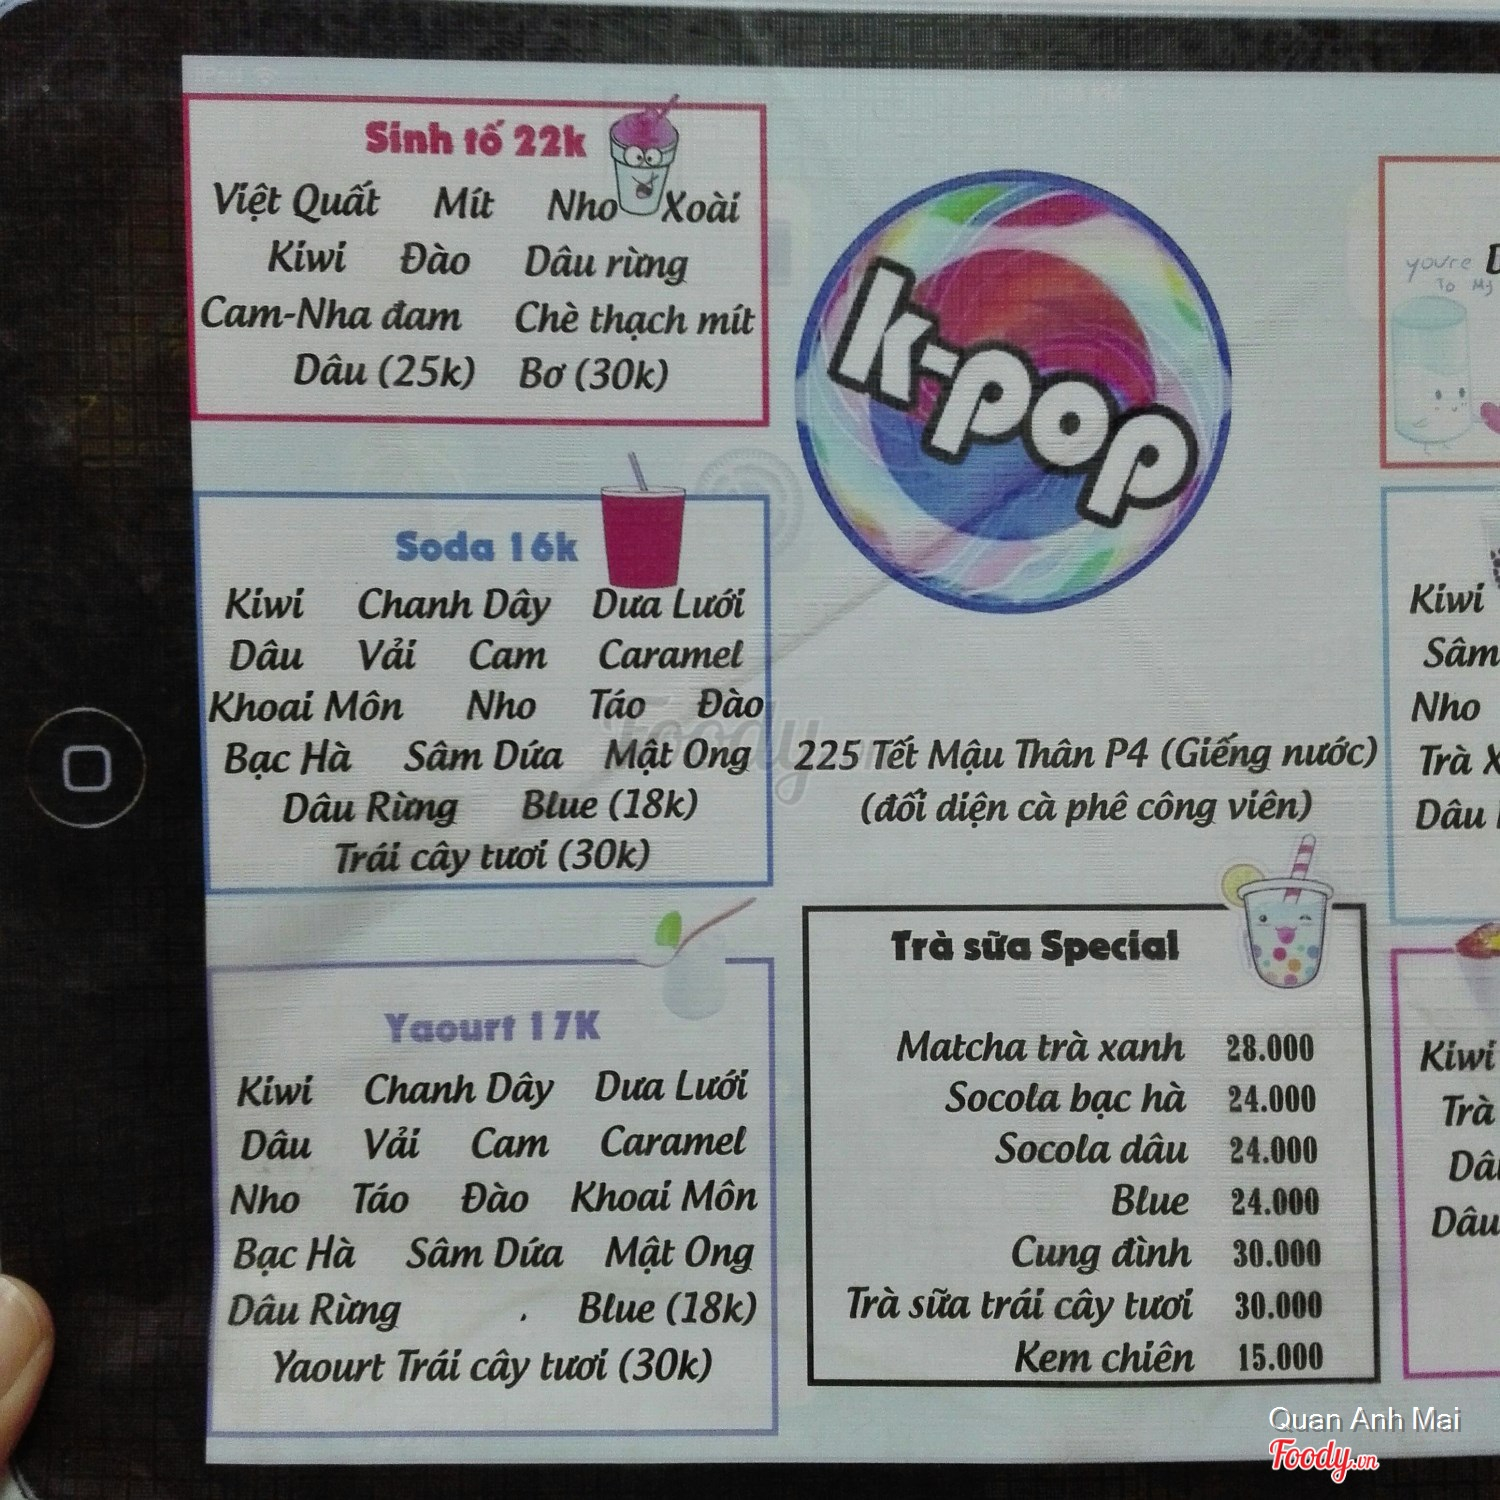 Sinh tố 22k
Việt Quất Mít Nho Xoài
Kiwi Đào Dâu rừng
Cam-Nha đam Chè thạch mít
Dâu (25k) Bơ (30k)
Soda 16k
Kiwi Chanh Dây Dưa Lưới
Dâu Vải Cam Caramel
Khoai Môn Nho Táo Đào
Bạc Hà Sâm Dứa Mật Ong
Dâu Rừng Blue (18k)
Trái cây tươi (30k)
Yaourt 17K
Kiwi Chanh Dây Dưa Lưới
Dâu Vải Cam Caramel
Nho Táo Đào Khoai Môn
Bạc Hà Sâm Dứa Mật Ong
Dâu Rừng . Blue (18k)
Yaourt Trái cây tươi (30k)
k-pop
225 Tết Mậu Thân P4 (Giếng nước)
(đối diện cà phê công viên)
Trà sữa Special
Matcha trà xanh 28.000
Socola bạc hà 24.000
Socola dâu 24.000
Blue 24.000
Cung đình 30.000
Trà sữa trái cây tươi 30.000
Kem chiên 15.000
you're
To My
Kiwi
Sâm
Nho
Trà X
Dâu
Kiwi
Trà
Dâu
Quan Anh Mai
Foody.vn